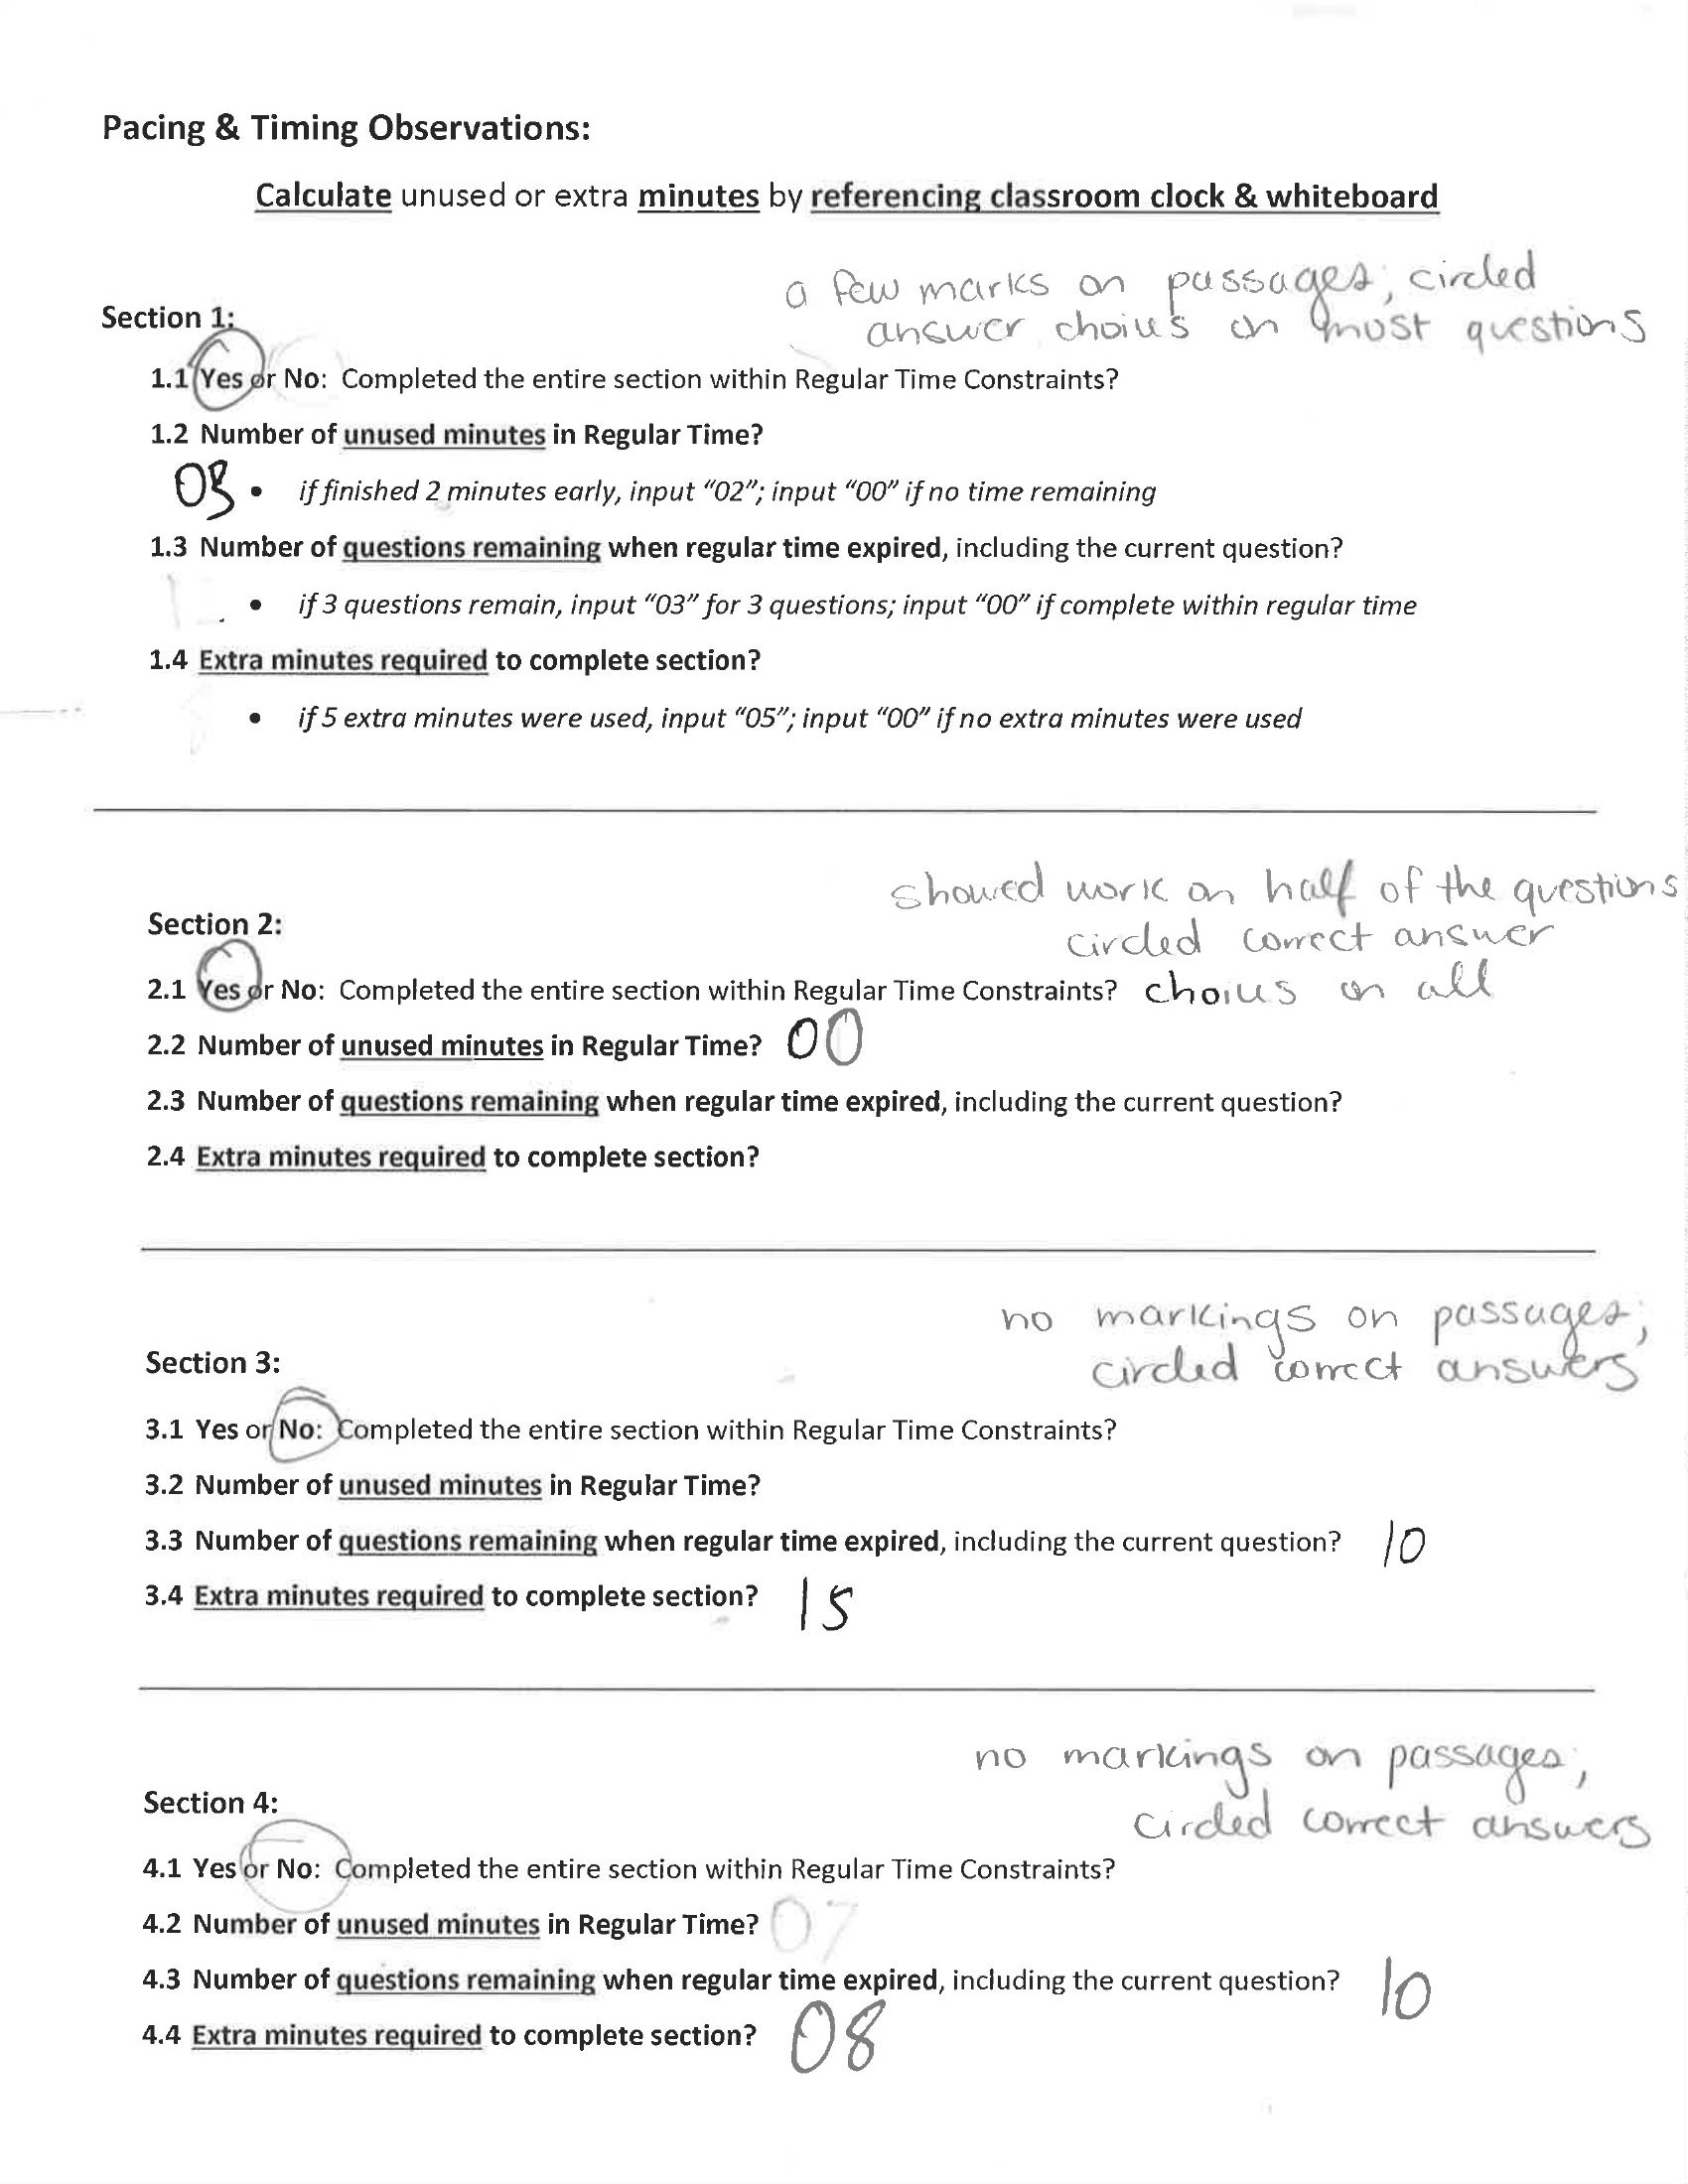 Pacing & Timing Observations:
Calculate unused or extra minutes by referencing classroom clock & whiteboard
a few marks on passages; circled
answer choices on most questions
Section 1:
1.1 Yes or No: Completed the entire section within Regular Time Constraints?
1.2 Number of unused minutes in Regular Time?
• if finished 2 minutes early, input "02"; input "00" if no time remaining
1.3 Number of questions remaining when regular time expired, including the current question?
• if 3 questions remain, input "03" for 3 questions; input "00" if complete within regular time
1.4 Extra minutes required to complete section?
• if 5 extra minutes were used, input "05"; input "00" if no extra minutes were used
showed work on half of the questions
Section 2:
circled correct answer
2.1 Yes or No: Completed the entire section within Regular Time Constraints? choices on all
2.2 Number of unused minutes in Regular Time? 00
2.3 Number of questions remaining when regular time expired, including the current question?
2.4 Extra minutes required to complete section?
no markings on passages;
Section 3:
circled correct answers
3.1 Yes or No: Completed the entire section within Regular Time Constraints?
3.2 Number of unused minutes in Regular Time?
3.3 Number of questions remaining when regular time expired, including the current question? 10
3.4 Extra minutes required to complete section? 15
no markings on passages;
Section 4:
circled correct answers
4.1 Yes or No: Completed the entire section within Regular Time Constraints?
4.2 Number of unused minutes in Regular Time? 07
4.3 Number of questions remaining when regular time expired, including the current question? 10
4.4 Extra minutes required to complete section? 08